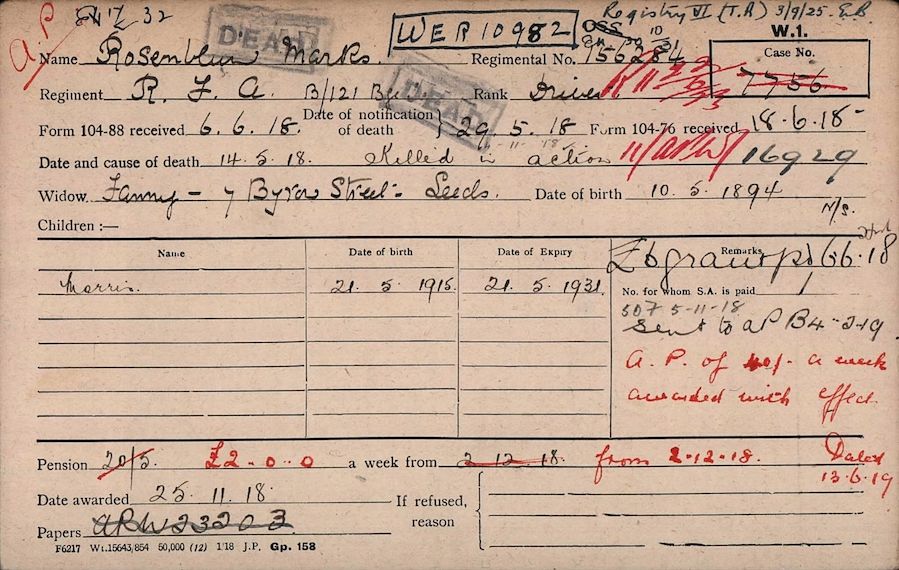 A.P. 32 DEAD WER 10982 Registry VI (T.A) 3/9/25. E.B.
W.1.
Name Rosenblum Marks. Regimental No. 156284 Case No.
7756
Regiment R. F. A. B/121 DEAD Rank Driver.
Form 104-88 received 6.6.18. Date of notification of death 29.5.18 Form 104-76 received 18-6-18-
Date and cause of death 14.5.18. Killed in action 16929
Widow Fanny - 7 Byron Street - Leeds. Date of birth 10.5.1894
N/S.
Children :—
Name Date of birth Date of Expiry Remarks £6 grant pd 6.6.18
Morris. 21.5.1915. 21.5.1931. No. for whom S.A. is paid 1
507 5-11-18
Sent to AP B 4-2-19
A. P. of 40/- a week
awarded with effect
Pension 20/5. £2-0-0 a week from 2-12-18. from 2-12-18. Dated
13-6-19
Date awarded 25.11.18. If refused,
reason
Papers APW 23203
F6217 Wt.15643/854 50,000 (12) 1/18 J.P. Gp. 158